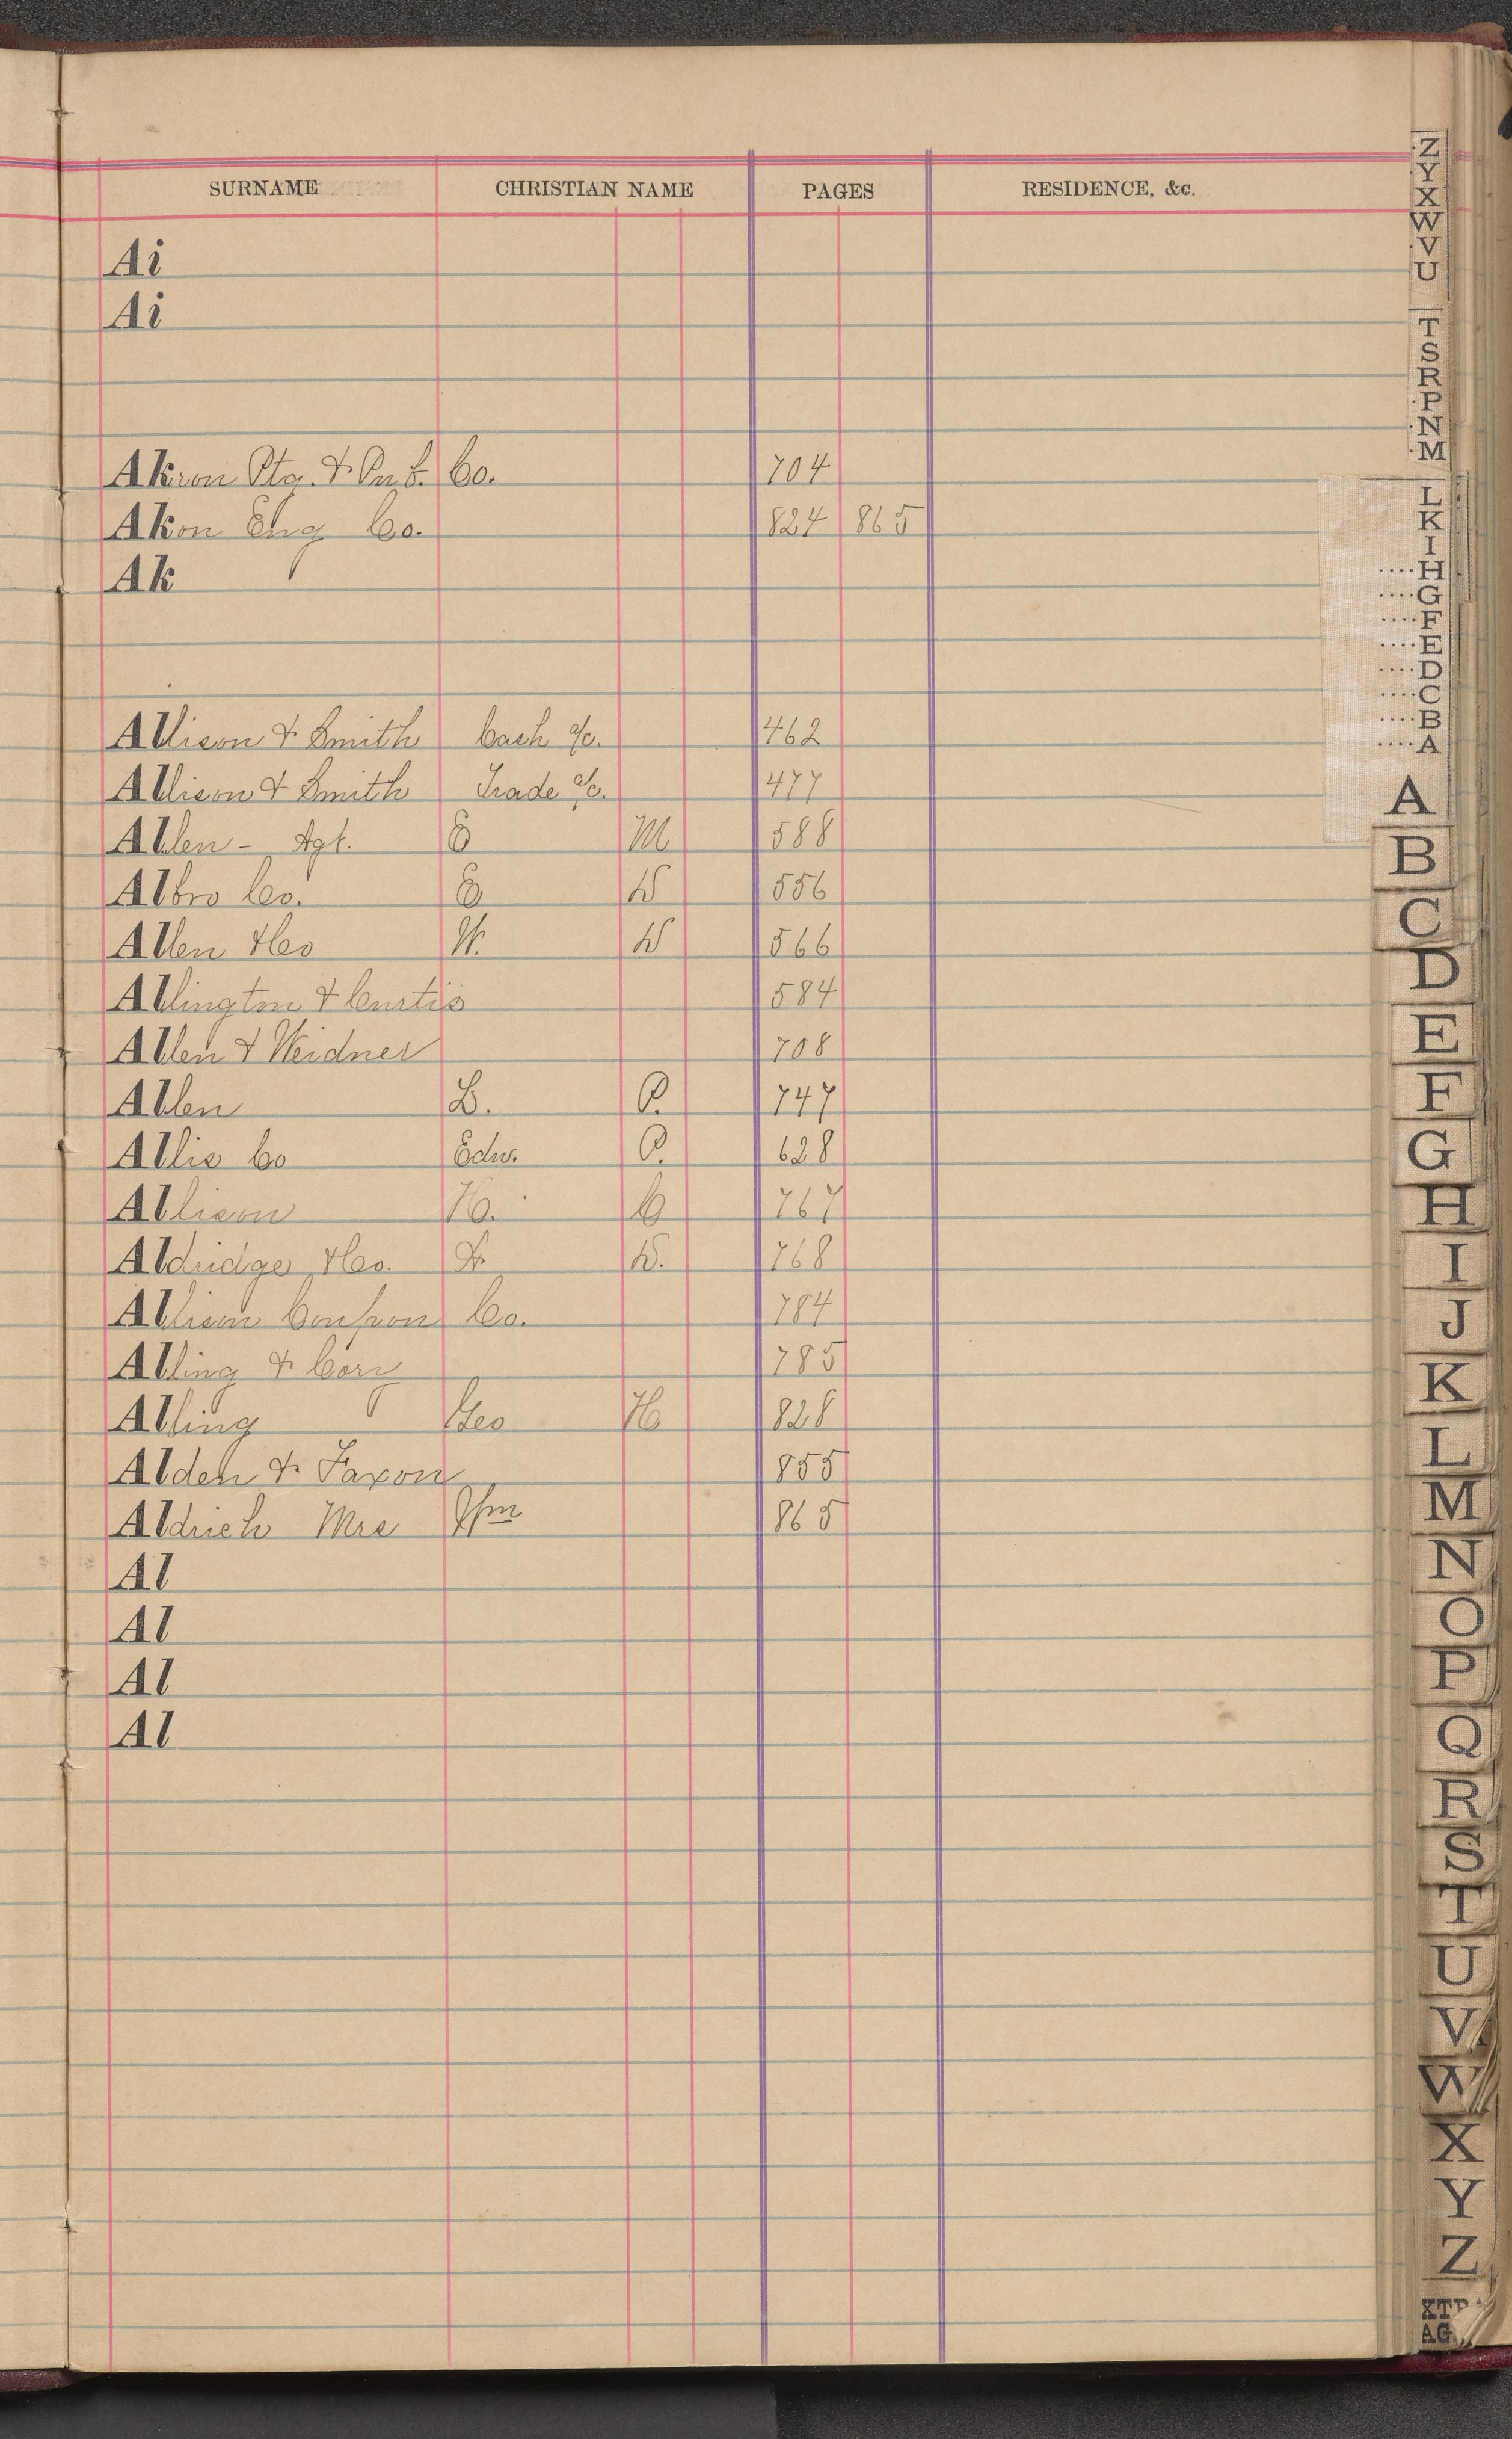 SURNAME CHRISTIAN NAME PAGES RESIDENCE, &c.
Ai
Ai
Akron Ptg. & Pub. Co. 704
Akon Eng Co. 824 865
Ak
Allison & Smith Cash a/c. 462
Allison & Smith Trade a/c. 477
Allen - Agt. E M 588
Albro Co. E D 556
Allen & Co W. D 566
Allington & Curtis 584
Allen & Weidner 708
Allen L. P. 747
Allis Co Edw. P. 628
Allison H. C 767
Aldridge & Co. F. D. 768
Allison Coupon Co. 784
Alling & Cory 785
Alling Geo H 828
Alden & Faxon 855
Aldrich Mrs Wm 865
Al
Al
Al
Al
Z
Y
X
W
V
U
T
S
R
P
N
M
L
K
I
....H
....G
....F
....E
....D
....C
....B
....A
A
B
C
D
E
F
G
H
I
J
K
L
M
N
O
P
Q
R
S
T
U
V
W
X
Y
Z